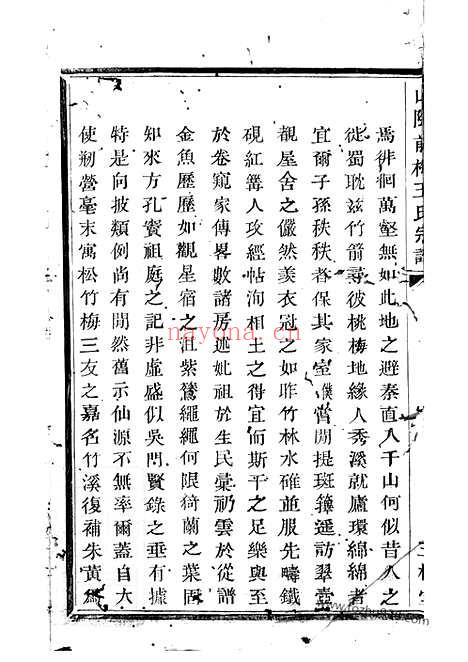 山陰前梅王氏宗譜
焉徘徊萬壑無如此地之避秦直入千山何似昔人之
從蜀耽兹竹箭尋彼桃梅地緣人秀溪就廬環綿綿者
宜爾子孫秩秩者保其家室僕嘗閒提斑籜遥訪翠壺
覩屋舍之儼然羡衣冠之如昨竹林水碓並服先疇鐵
硯紅篝人攻經帖洵相土之得宜而斯干之足樂與至
於卷窺家傳畧數諸房述妣祖於生民彙礽雲於從譜
金魚歷歷如觀星宿之沮紫鷟繩繩何限猗蘭之葉固
知來方孔賓祖庭之記非虛盛似吳門賢錄之垂有據
特是向披類例尚有閒然舊示仙源不無率爾蓋自大
使剏營毫末寓松竹梅三友之嘉名竹溪復補朱黃爲
nayona.cn